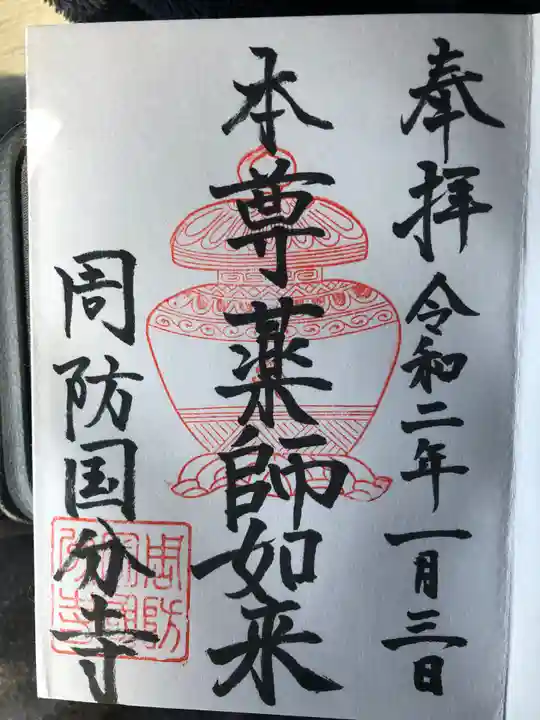 奉拝 令和二年一月三日
本尊薬師如来
周防国分寺